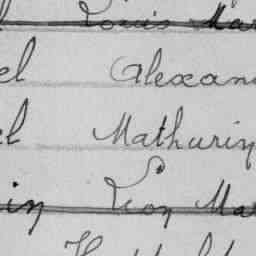 Louis Ma
el Alexan
el Mathurin
in Léon Ma